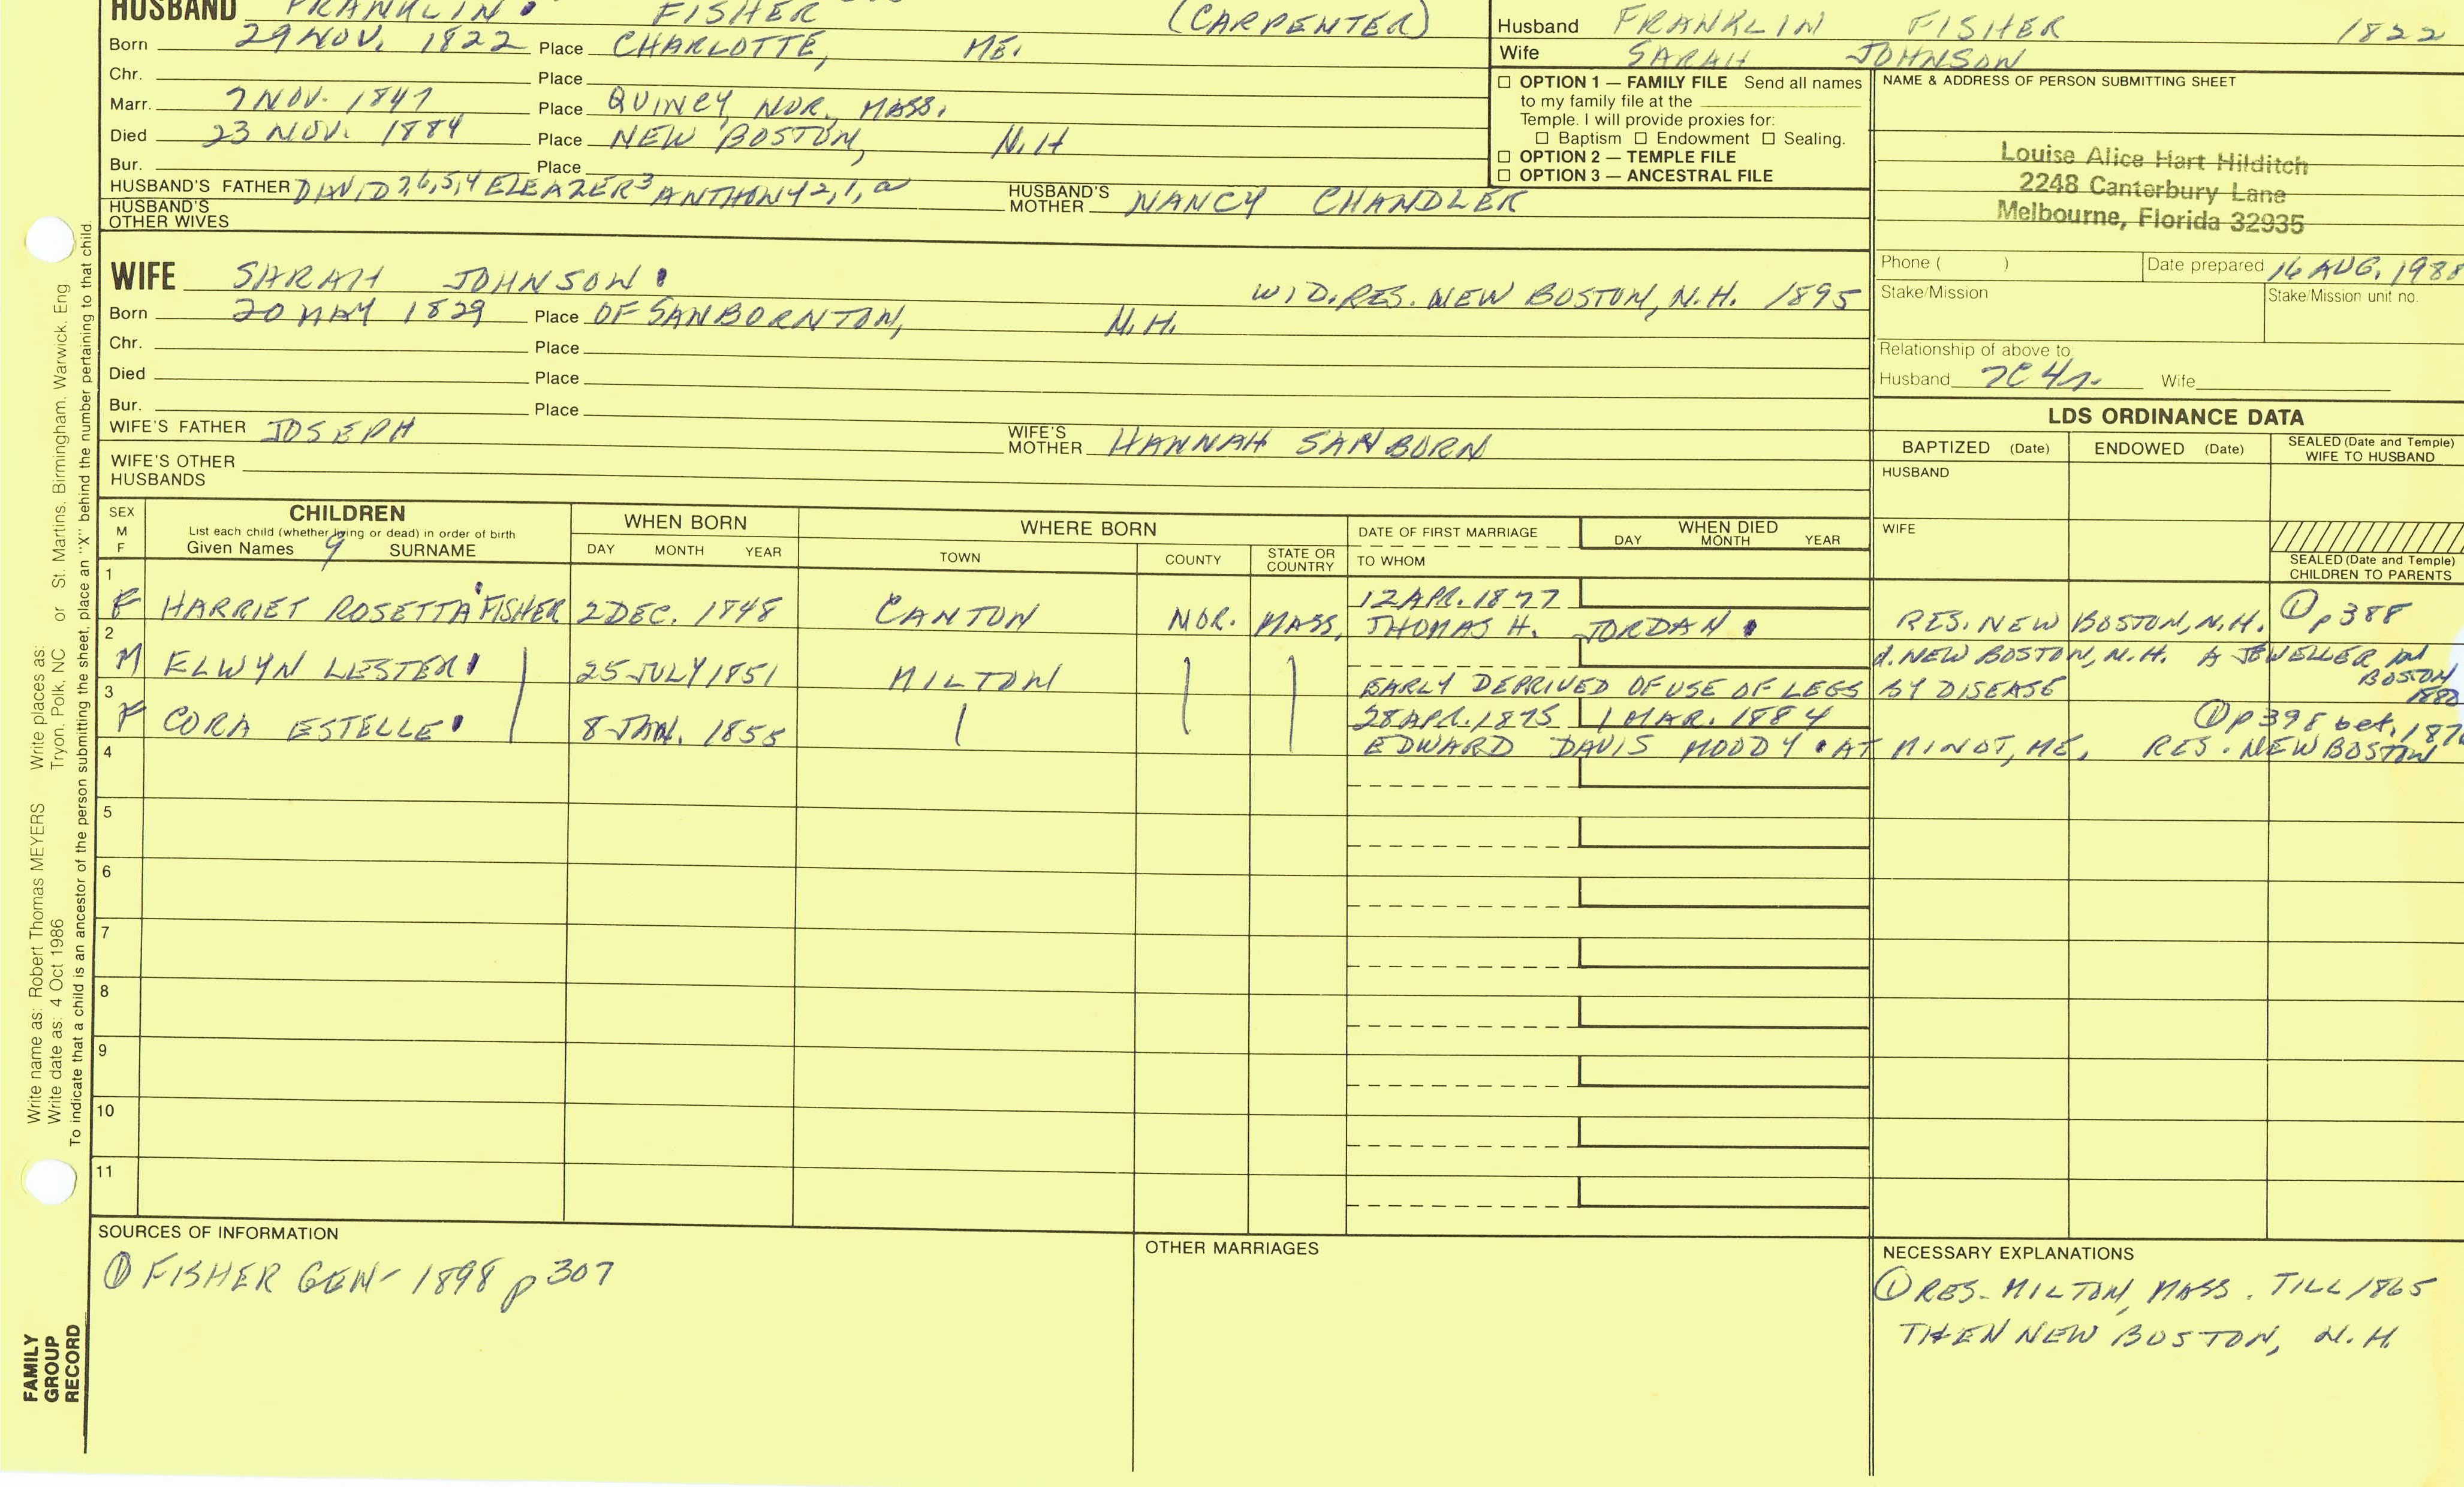 HUSBAND FRANKLIN FISHER (CARPENTER)
Born 29 NOV. 1822 Place CHARLOTTE, ME.
Chr. Place
Marr. 7 NOV. 1847 Place QUINCY, NOR., MASS.
Died 23 NOV. 1884 Place NEW BOSTON, N.H
Bur. Place
HUSBAND'S FATHER DAVID 7,6,5,4 ELEAZER 3 ANTHONY 2,1,a HUSBAND'S MOTHER NANCY CHANDLER
HUSBAND'S OTHER WIVES
Husband FRANKLIN FISHER 1822
Wife SARAH JOHNSON
☐ OPTION 1 — FAMILY FILE Send all names
to my family file at the
Temple. I will provide proxies for:
☐ Baptism ☐ Endowment ☐ Sealing.
☐ OPTION 2 — TEMPLE FILE
☐ OPTION 3 — ANCESTRAL FILE
NAME & ADDRESS OF PERSON SUBMITTING SHEET
Louise Alice Hart Hilditch
2248 Canterbury Lane
Melbourne, Florida 32935
Phone ( ) Date prepared 16 AUG. 1988
Stake/Mission Stake/Mission unit no.
Relationship of above to
Husband 7C4r. Wife
WIFE SARAH JOHNSON
WID. RES. NEW BOSTON, N.H. 1895
Born 20 MAY 1829 Place OF SANBORNTON, N.H.
Chr. Place
Died Place
Bur. Place
WIFE'S FATHER JOSEPH WIFE'S MOTHER HANNAH SANBORN
WIFE'S OTHER HUSBANDS
LDS ORDINANCE DATA
BAPTIZED (Date) ENDOWED (Date) SEALED (Date and Temple) WIFE TO HUSBAND
HUSBAND
WIFE
SEALED (Date and Temple) CHILDREN TO PARENTS
SEX M F
CHILDREN
List each child (whether living or dead) in order of birth
Given Names 9 SURNAME
WHEN BORN
DAY MONTH YEAR
WHERE BORN
TOWN COUNTY STATE OR COUNTRY
DATE OF FIRST MARRIAGE
TO WHOM
WHEN DIED
DAY MONTH YEAR
1 F HARRIET ROSETTA FISHER 2 DEC. 1848 CANTON NOR. MASS. 12 APR. 1877
THOMAS H. JORDAN RES. NEW BOSTON, N.H. ① p 388
2 M ELWYN LESTER 25 JULY 1851 MILTON d. NEW BOSTON, N.H. A JEWELLER IN BOSTON 1880
EARLY DEPRIVED OF USE OF LEGS BY DISEASE
3 F CORA ESTELLE 8 JAN. 1855 28 APR. 1875 1 MAR. 1884 ① p 398 bet. 1876
EDWARD DAVIS MOODY AT MINOT, ME. RES. NEW BOSTON
4
5
6
7
8
9
10
11
SOURCES OF INFORMATION
① FISHER GEN- 1898 p 307
OTHER MARRIAGES
NECESSARY EXPLANATIONS
① RES- MILTON, MASS. TILL 1865
THEN NEW BOSTON, N.H.
Write name as: Robert Thomas MEYERS Write places as: St. Martins, Birmingham, Warwick, Eng
Write date as: 4 Oct 1986 Tryon, Polk, NC or
To indicate that a child is an ancestor of the person submitting the sheet, place an "X" behind the number pertaining to that child.
FAMILY
GROUP
RECORD